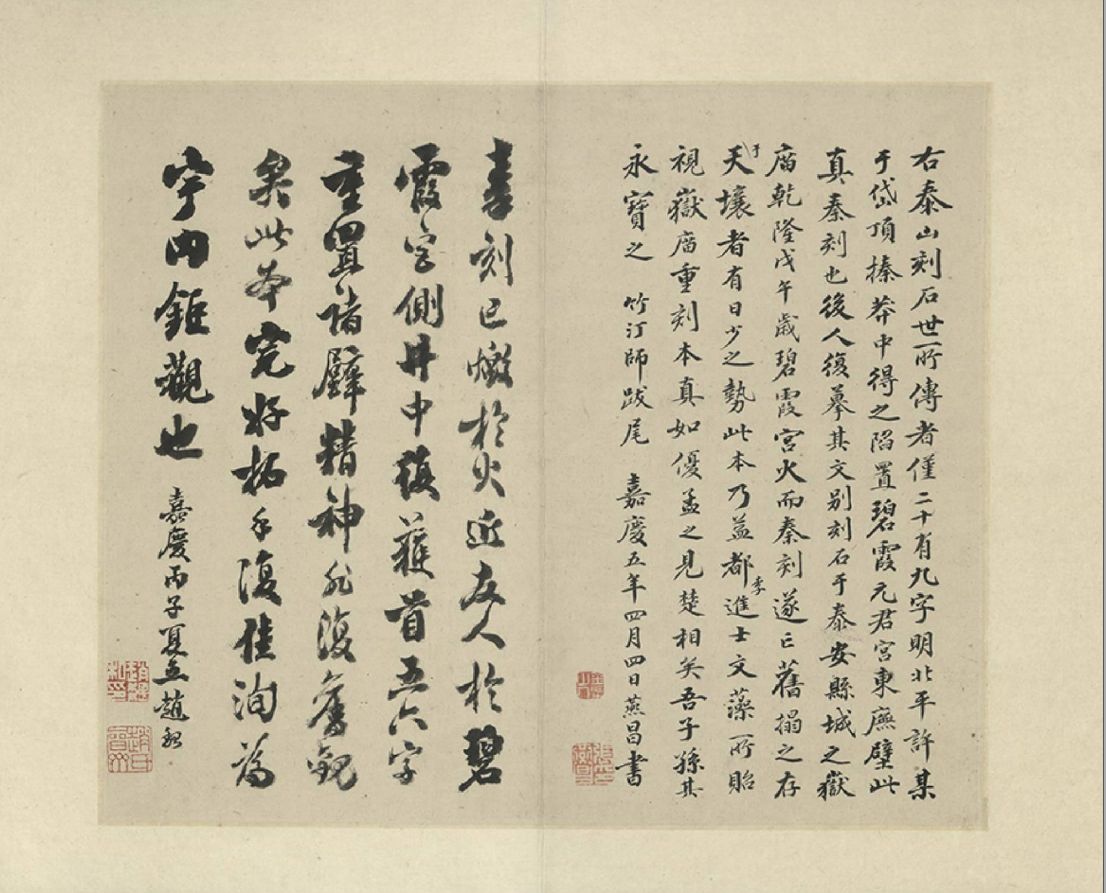 右泰山刻石世所傳者僅二十有九字明北平許某
于岱頂榛莽中得之陷置碧霞元君宮東廡壁此
真秦刻也後人復摹其文別刻石于泰安縣城之嶽
廟乾隆戊午歲碧霞宮火而秦刻遂亡舊搨之存
于天壤者有日少之勢此本乃益都李進士文藻所貽
視嶽廟重刻本真如優孟之見楚相矣吾子孫其
永寶之 竹汀師跋尾 嘉慶五年四月四日燕昌書
秦刻已燬於火近友人於碧
霞宮側井中復獲首五六字
重置諸壁精神能復奮觀
矣此本完好拓手復佳洵為
宇內鉅觀也 嘉慶丙子夏五趙魏